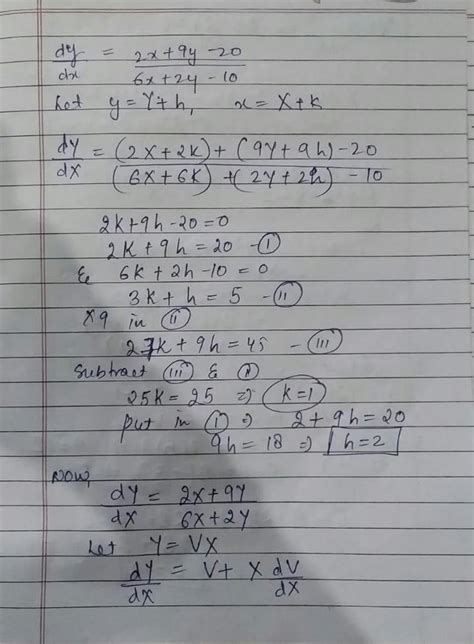 dy/dx = (2x+9y-20)/(6x+2y-10)
Let y=Y+h, x=X+k
dY/dX = ((2X+2K)+(9Y+9h)-20)/((6X+6K)+(2Y+2h)-10)
2K+9h-20=0
2K+9h=20 -(i)
& 6K+2h-10=0
3K+h=5 -(ii)
x9 in (ii)
27K+9h=45 -(iii)
Subtract (iii) & (i)
25K=25 => K=1
put in (i) => 2+9h=20
9h=18 => h=2
NOW,
dY/dX = (2X+9Y)/(6X+2Y)
Let Y=VX
dY/dX = V+ X dV/dX